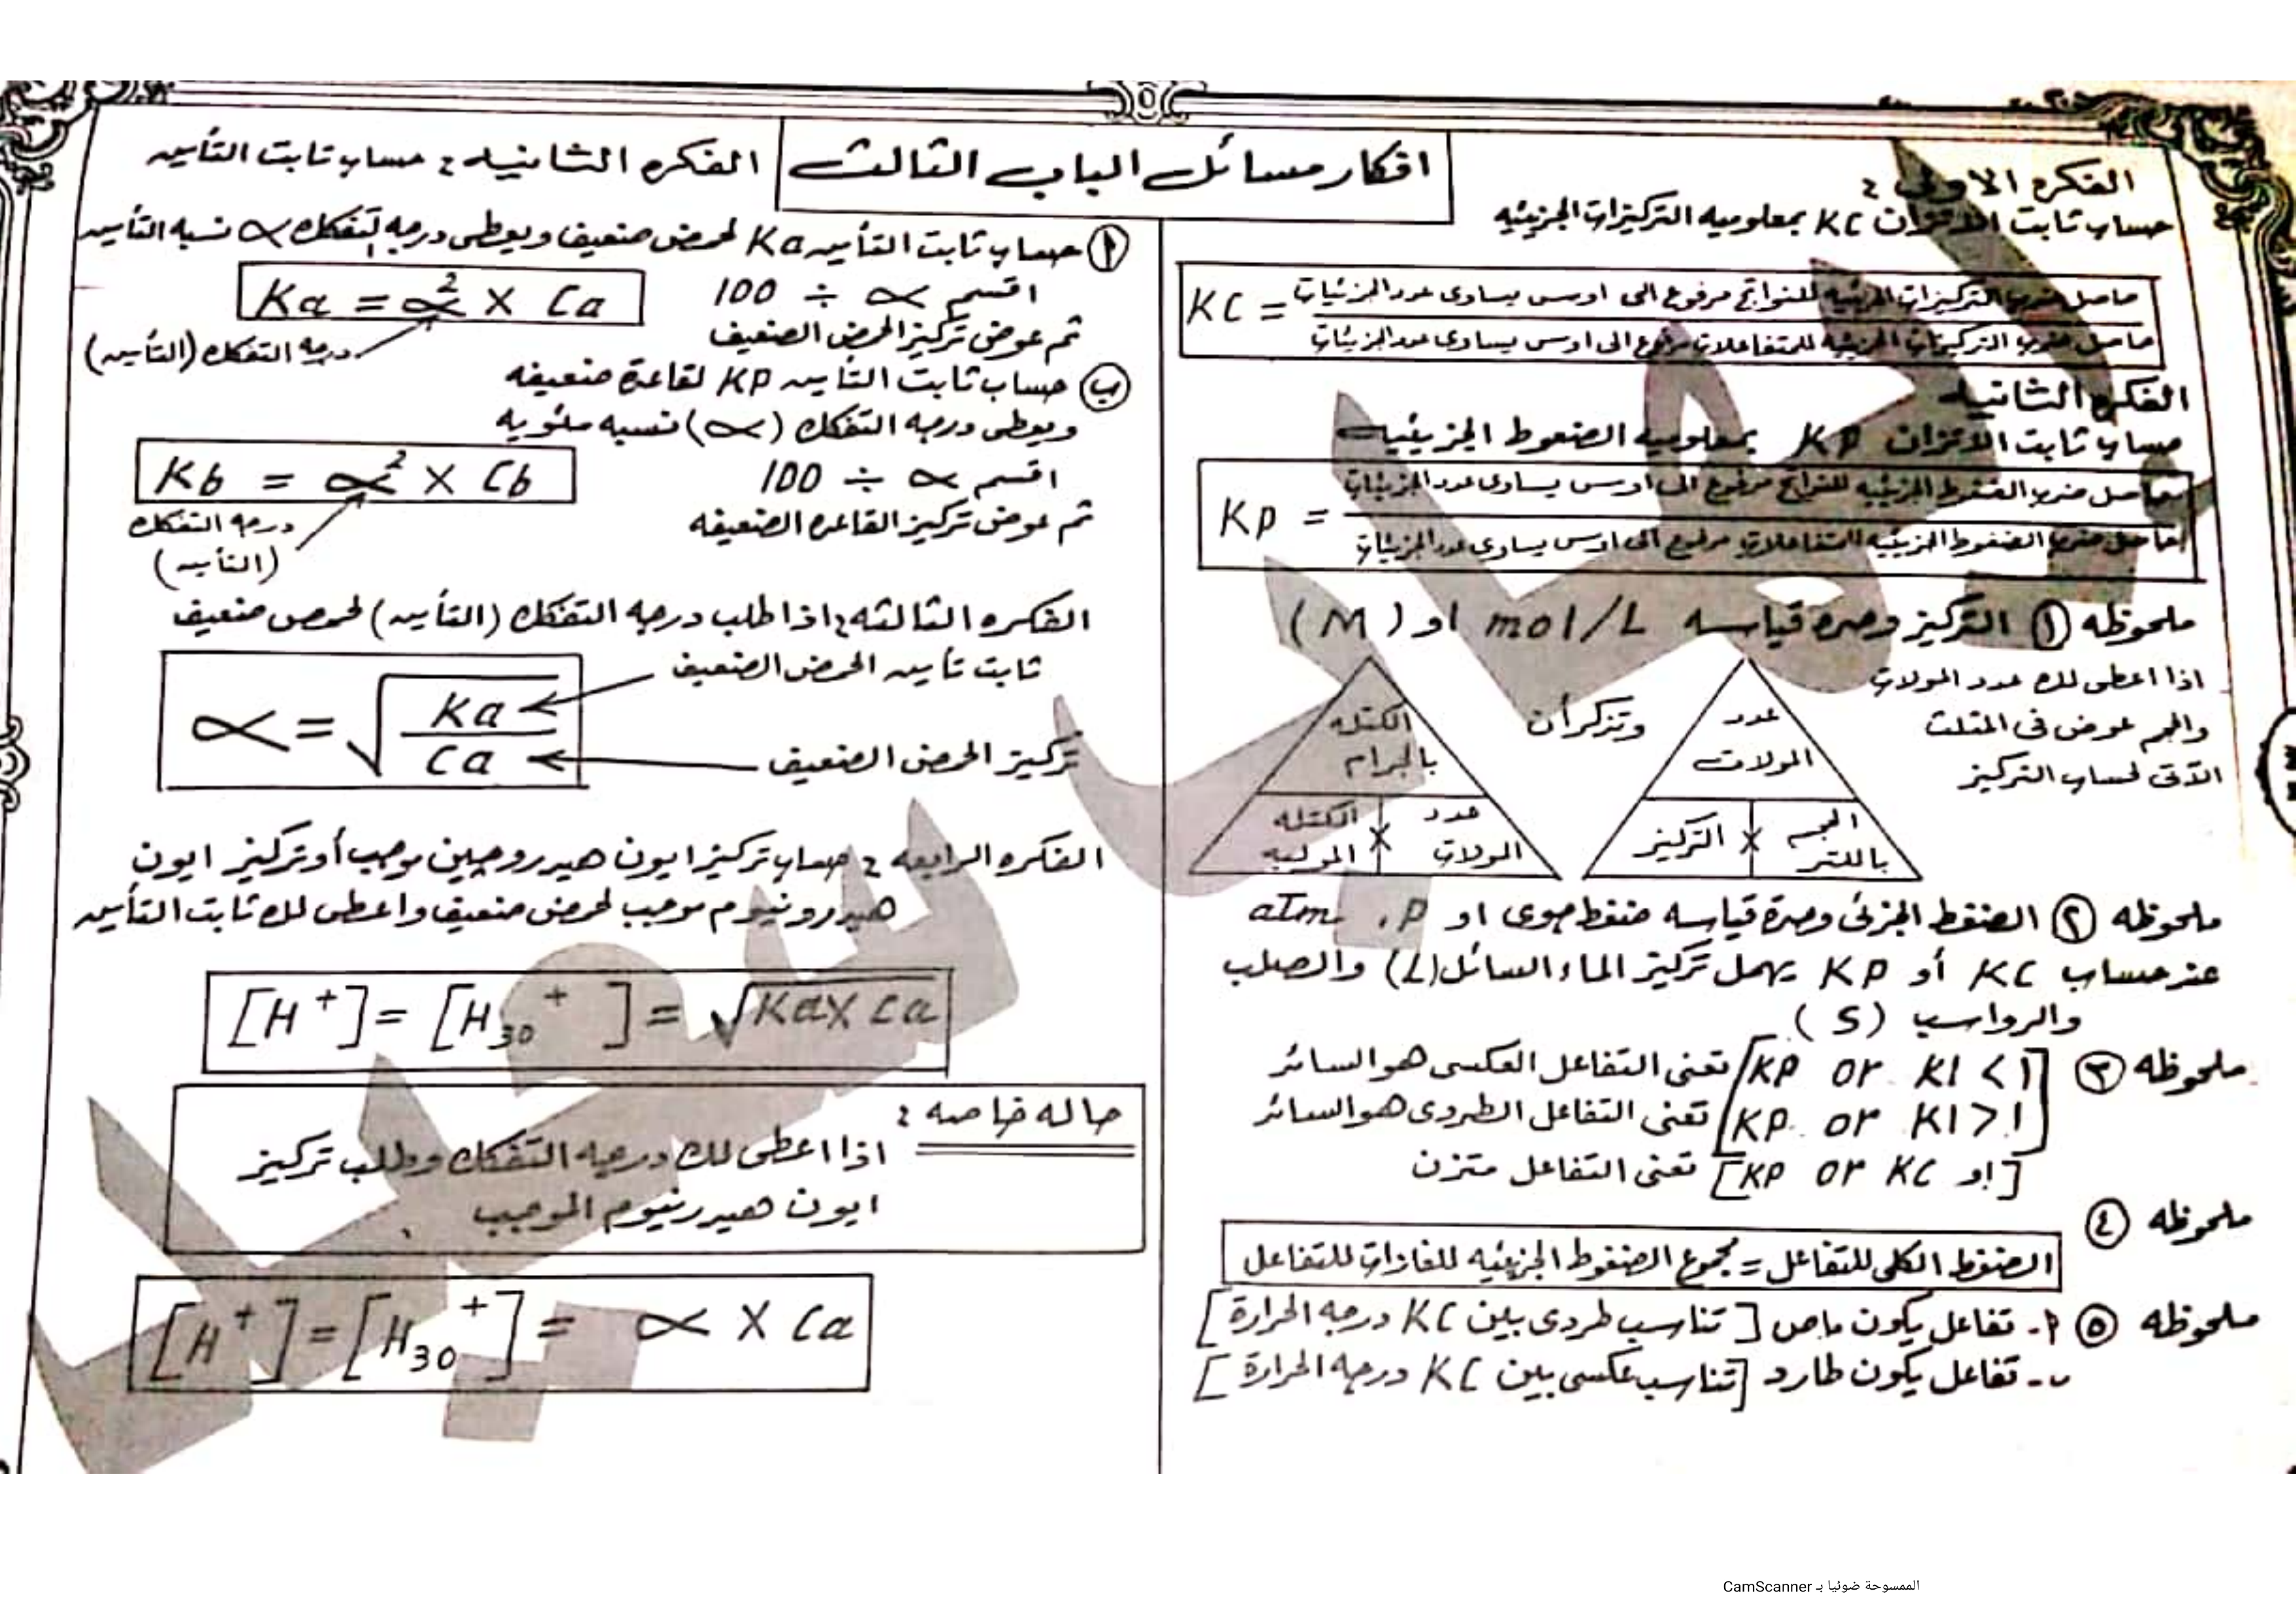 افكار مسائل الباب الثالث
الفكره الاولى :
حساب ثابت الاتزان KC بمعلوميه التركيزات الجزيئيه
KC = حاصل ضرب التركيزات الجزيئيه للنواتج مرفوع الى اوسس يساوى عدد الجزيئات
حاصل ضرب التركيزات الجزيئيه للمتفاعلات مرفوع الى اوسس يساوى عدد الجزيئات
الفكره الثانيه
حساب ثابت الاتزان KP بمعلوميه الضغوط الجزيئيه
KP = حاصل ضرب الضغوط الجزيئيه للنواتج مرفوع الى اوسس يساوى عدد الجزيئات
حاصل ضرب الضغوط الجزيئيه للمتفاعلات مرفوع الى اوسس يساوى عدد الجزيئات
ملحوظه ① التركيز وحده قياسه mol/L او (M)
اذا اعطى لك عدد المولات
والحجم عوض فى المثلث
الآتى لحساب التركيز
عدد المولات
الحجم باللتر × التركيز
وتذكر أن
الكتله بالجرام
عدد المولات × الكتله الموليه
ملحوظه ② الضغط الجزئى وحدة قياسه ضغط جوى او atm . P
عند حساب KC أو KP يهمل تركيز الماء السائل (L) والصلب
والرواسب (S)
ملحوظه ③ [KP or K1 < 1] تعنى التفاعل العكسى هو السائد
[KP or K1 > 1] تعنى التفاعل الطردى هو السائد
[KP or KC او] تعنى التفاعل متزن
ملحوظه ④
الضغط الكلى للتفاعل = مجموع الضغوط الجزيئيه للغازات للتفاعل
ملحوظه ⑤ ٢- تفاعل يكون ماص [تناسب طردى بين KC ودرجه الحرارة]
ب- تفاعل يكون طارد [تناسب عكسى بين KC ودرجه الحرارة]
الفكره الثانيه : حساب ثابت التأين
أ حساب ثابت التأين Ka لحمض ضعيف ويعطى درجه لتفكك α نسبه التأين
اقسم α ÷ 100
Ka = α² X Ca
ثم عوض تركيز الحمض الضعيف
درجه التفكك (التأين)
ب حساب ثابت التأين KP لقاعدة ضعيفه
ويعطى درجه التفكك (α) نسبه مئويه
اقسم α ÷ 100
Kb = α² X Cb
ثم عوض تركيز القاعده الضعيفه
درجه التفكك
(التأين)
الفكره الثالثه : اذا طلب درجه التفكك (التأين) لحمض ضعيف
α = √ Ka / Ca
ثابت تأين الحمض الضعيف
تركيز الحمض الضعيف
الفكره الرابعه : حساب تركيز ايون هيدروجين موجب أو تركيز ايون
هيدرونيوم موجب لحمض ضعيف واعطى لك ثابت التأين
[H⁺] = [H₃₀⁺] = √Ka X Ca
حاله خاصه :
اذا اعطى لك درجه التفكك وطلب تركيز
ايون هيدرنيوم الموجب
[H⁺] = [H₃₀⁺] = α X Ca
الممسوحة ضوئيا بـ CamScanner